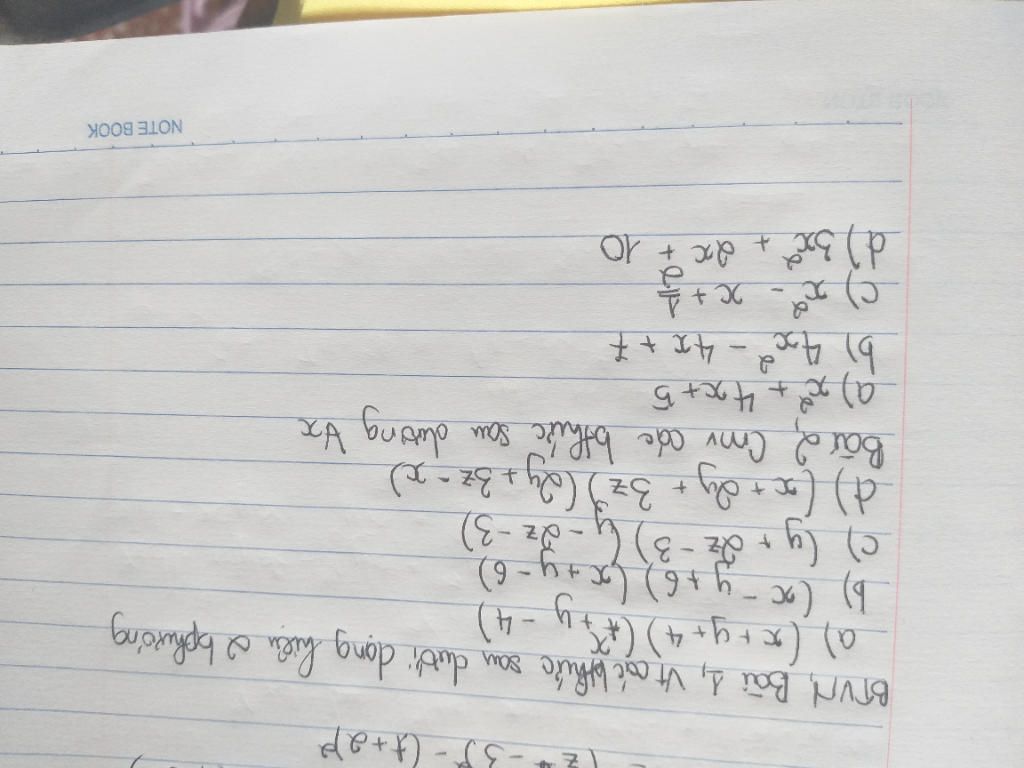 (z - 3)² - (t + 2)²
BTVN, Bài 1, Vt các bthức sau dưới dạng hiệu 2 bphương
a) (x + y + 4)(x + y - 4)
b) (x - y + 6)(x + y - 6)
c) (y + 2z - 3)(y - 2z - 3)
d) (x + 2y + 3z)(2y + 3z - x)
Bài 2, Cmr các bthức sau dương ∀x
a) x² + 4x + 5
b) 4x² - 4x + 7
c) x² - x + 1/2
d) 3x² + 2x + 10
NOTE BOOK